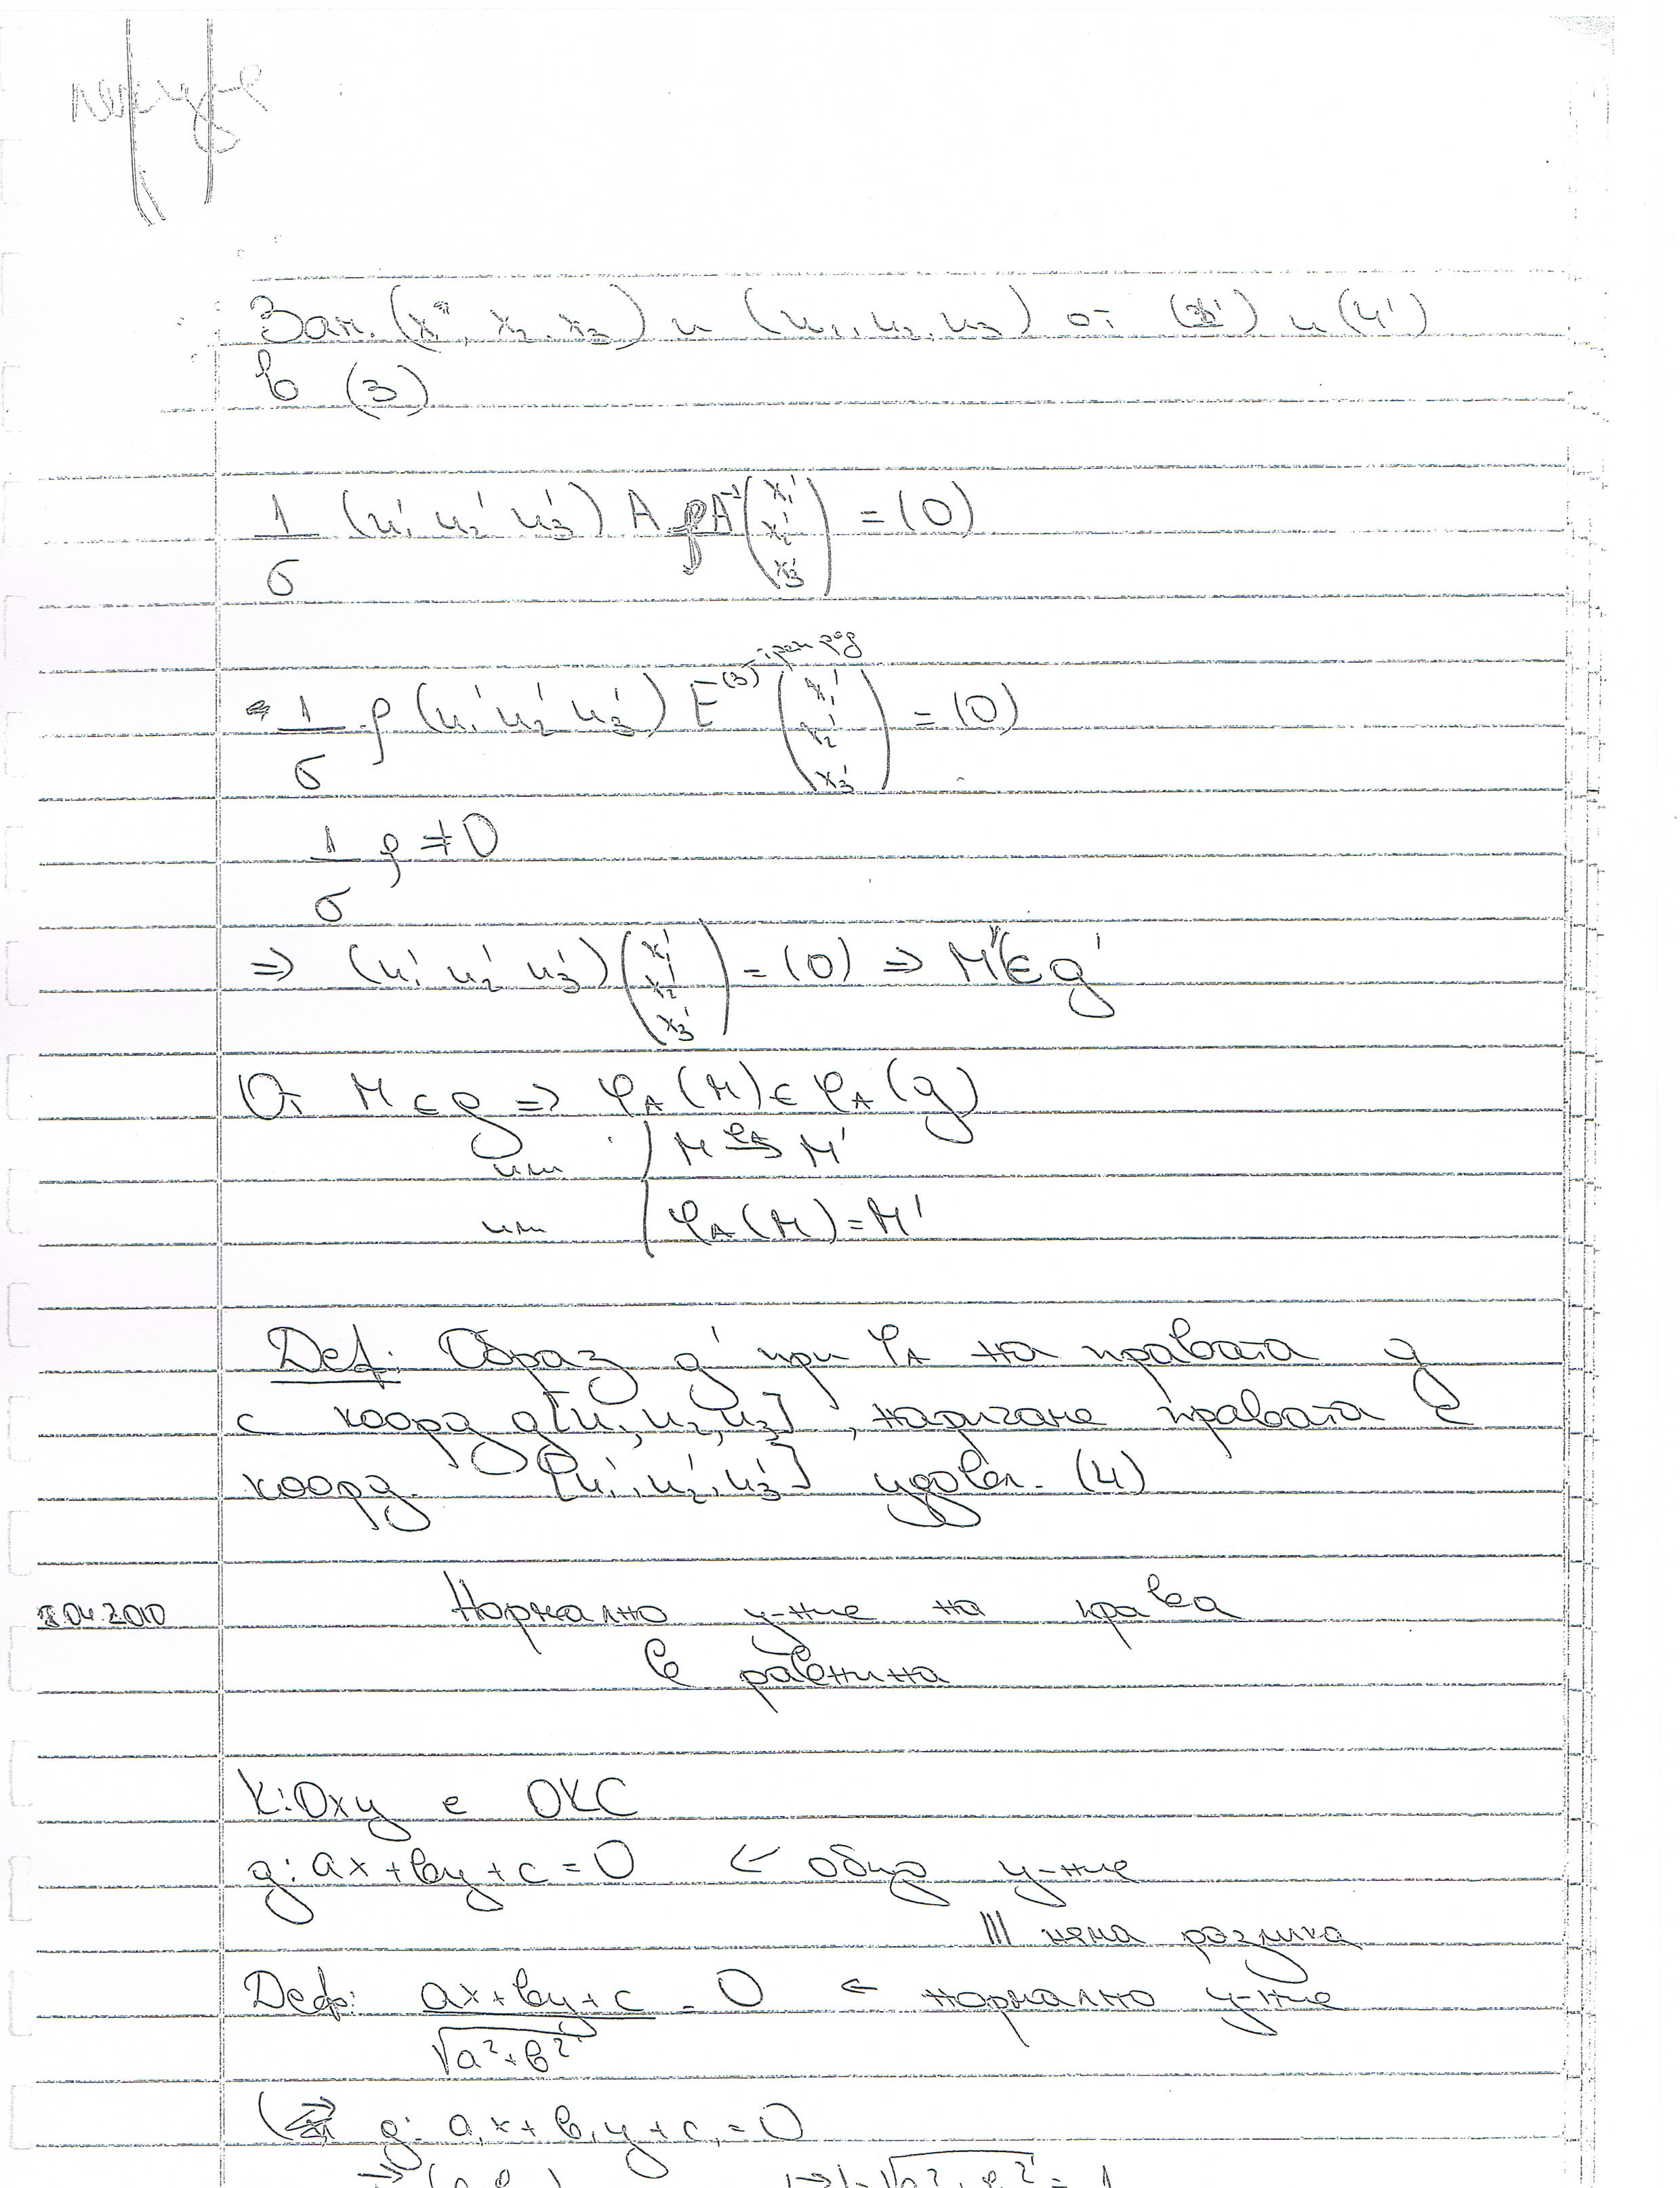 Зам. (x₁, x₂, x₃) и (u₁, u₂, u₃) от (3') и (4')
в (3)
1/σ (u₁' u₂' u₃') A ρA⁻¹ (x₁' x₂' x₃') = (0)
трети ред
1/σ ρ (u₁' u₂' u₃') E⁽³⁾ (x₁' x₂' x₃') = (0)
1/σ ρ ≠ 0
⇒ (u₁' u₂' u₃') (x₁' x₂' x₃') = (0) ⇒ M' ∈ g'
От M ∈ g ⇒ φ_A (M) ∈ φ_A (g)
или | M →^{φ_A} M'
или | φ_A (M) = M'
Def: Образ g' при φ_A на правата g
с коорд g[u₁, u₂, u₃], наричаме правата с
коорд. [u₁', u₂', u₃'] удовл. (4)
.04.2010 Нормално у-ние на права
в равнина
K: Oxy е ОКС
g: ax + by + c = 0 ← общо у-ние
||| няма разлика
Деф: (ax + by + c)/√(a² + b²) = 0 ← нормално у-ние
g: a₁x + b₁y + c₁ = 0